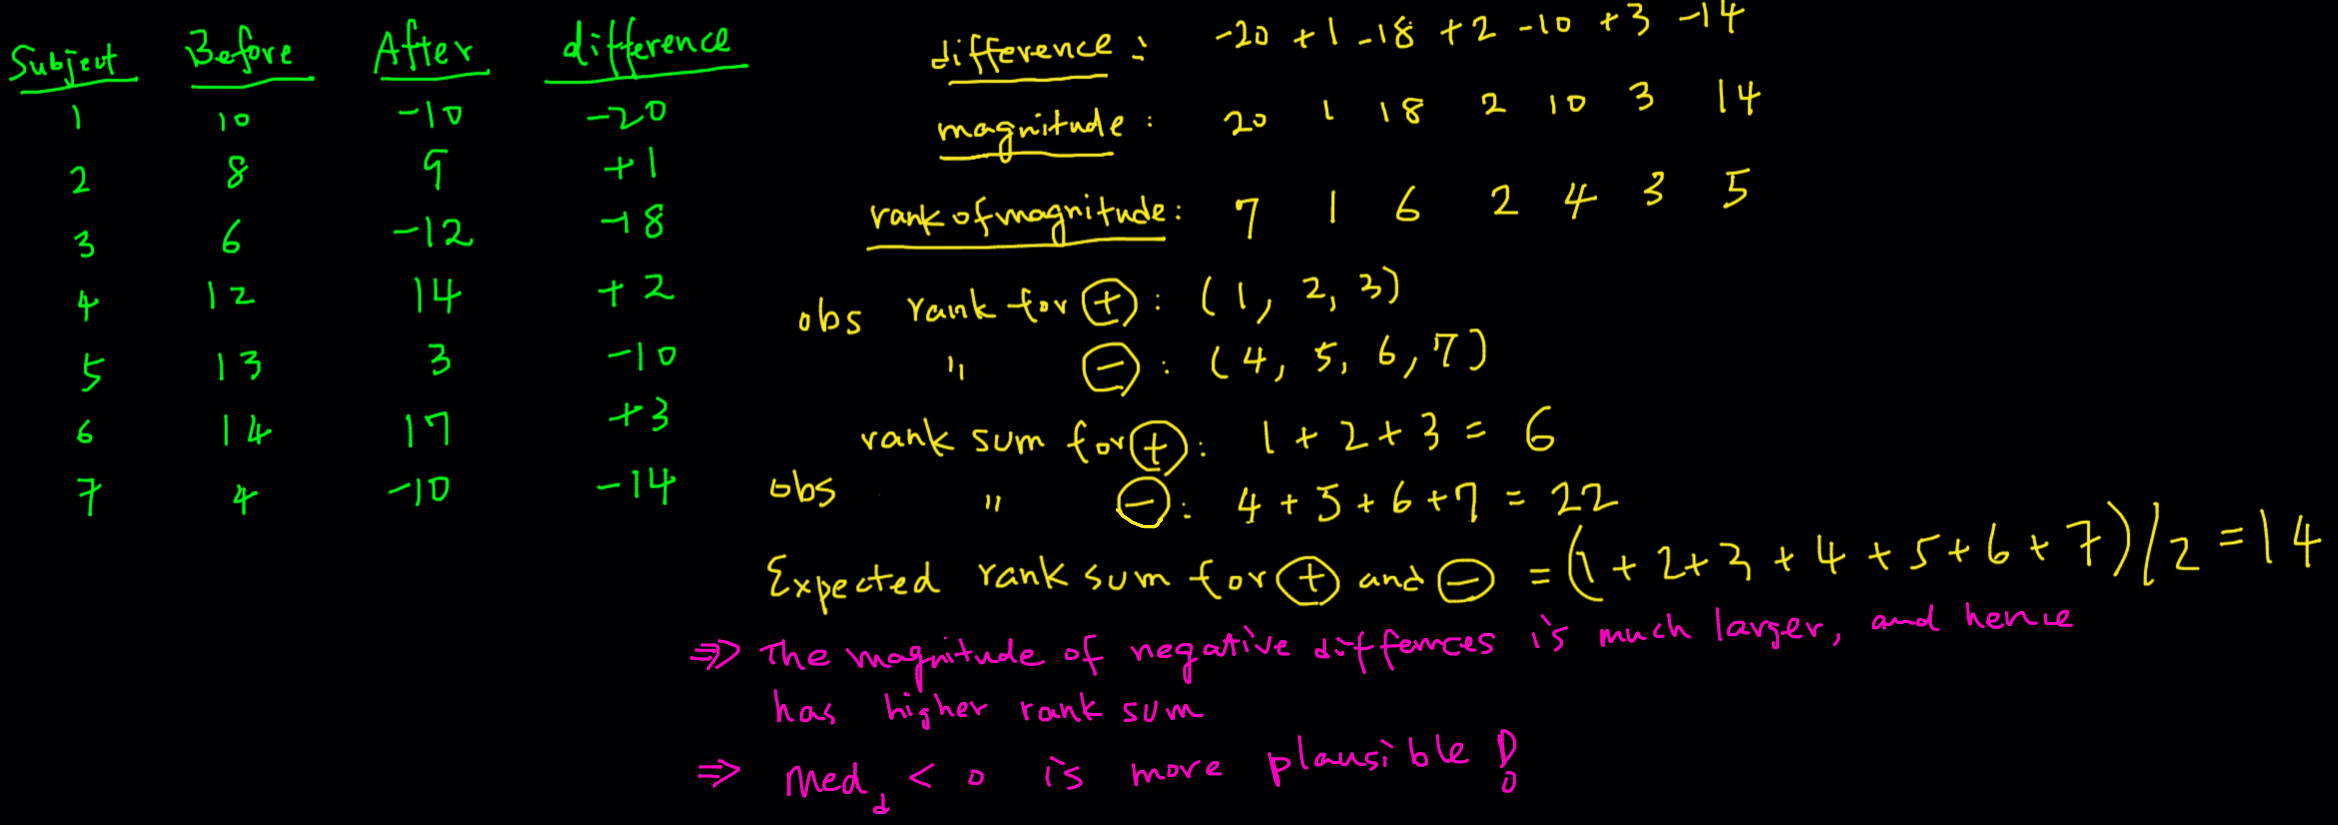 Subject Before After difference
1 10 -10 -20
2 8 9 +1
3 6 -12 -18
4 12 14 +2
5 13 3 -10
6 14 17 +3
7 4 -10 -14
difference: -20 +1 -18 +2 -10 +3 -14
magnitude: 20 1 18 2 10 3 14
rank of magnitude: 7 1 6 2 4 3 5
obs rank for (+): (1, 2, 3)
" (-): (4, 5, 6, 7)
rank sum for (+): 1+2+3 = 6
obs " (-): 4+5+6+7 = 22
Expected rank sum for (+) and (-) = (1+2+3+4+5+6+7)/2 = 14
⇒ The magnitude of negative diffences is much larger, and hence
has higher rank sum
⇒ Med_d < 0 is more plausible!